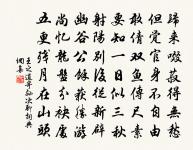 歸來啜菽得無愁
但覺官身不自由
敢倩雙魚傳尺素
要知一日似三秋
射陽從新辟
幽谷公餘游
尚憶龍盤分袂處
五更殘月在山頭
王之道